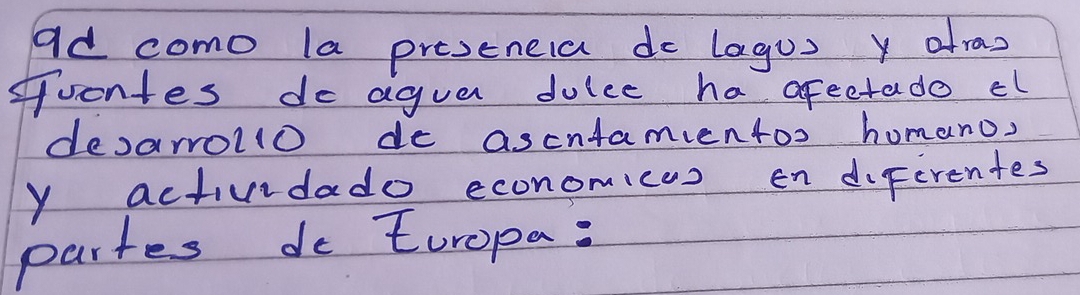 9d como la presencia de lagos y otras
fuentes de agua dulce ha afectado el
desarrollo de asentamientos humanos
y actividado economicas en diferentes
partes de Europa: